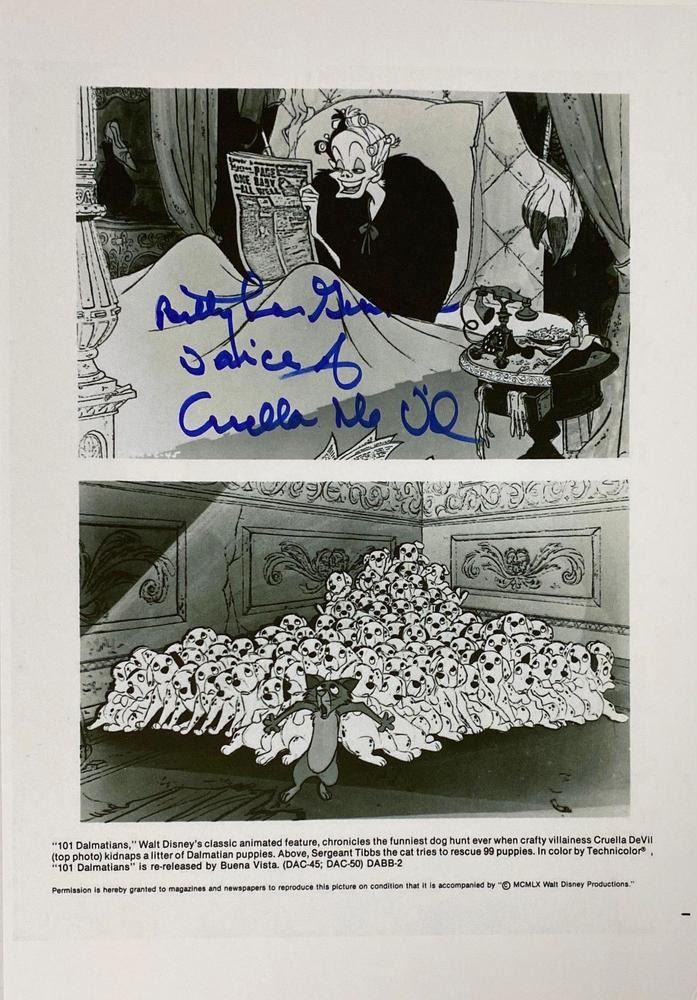 PAGE
ONE BABY
Betty Lou Gerson
Voice of
Cruella De Vil
"101 Dalmatians," Walt Disney's classic animated feature, chronicles the funniest dog hunt ever when crafty villainess Cruella DeVil
(top photo) kidnaps a litter of Dalmatian puppies. Above, Sergeant Tibbs the cat tries to rescue 99 puppies. In color by Technicolor®,
"101 Dalmatians" is re-released by Buena Vista. (DAC-45; DAC-50) DABB-2
Permission is hereby granted to magazines and newspapers to reproduce this picture on condition that it is accompanied by "© MCMLX Walt Disney Productions."